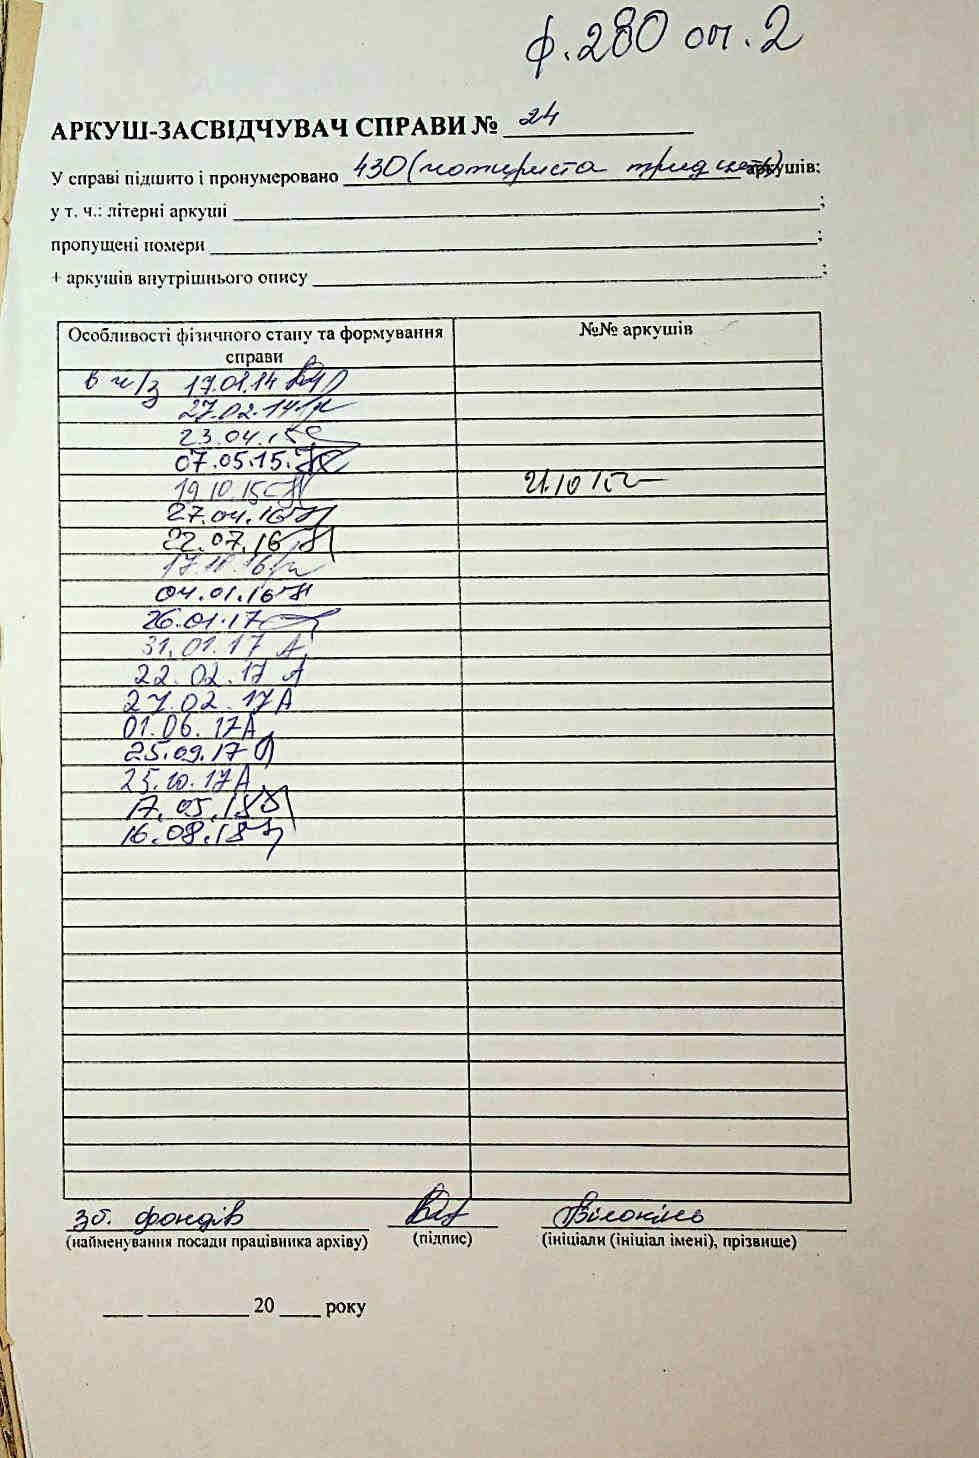 ф.280 оп.2
АРКУШ-ЗАСВІДЧУВАЧ СПРАВИ № 24
У справі підшито і пронумеровано 430 (чотириста тридцять) аркушів;
у т. ч.: літерні аркуші ;
пропущені номери ;
+ аркушів внутрішнього опису ;
Особливості фізичного стану та формування справи №№ аркушів
в ч/з 17.01.14
27.02.14
23.04.15
07.05.15
19.10.15 21.10.15
27.04.16
22.07.16
17.10.16
04.01.16
26.01.17
31.01.17 А
22.02.17 А
27.02.17 А
01.06.17 А
25.09.17
25.10.17 А
17.05.18
16.08.18
зб. фондів Білокінь
(найменування посади працівника архіву) (підпис) (ініціали (ініціал імені), прізвище)
20 року